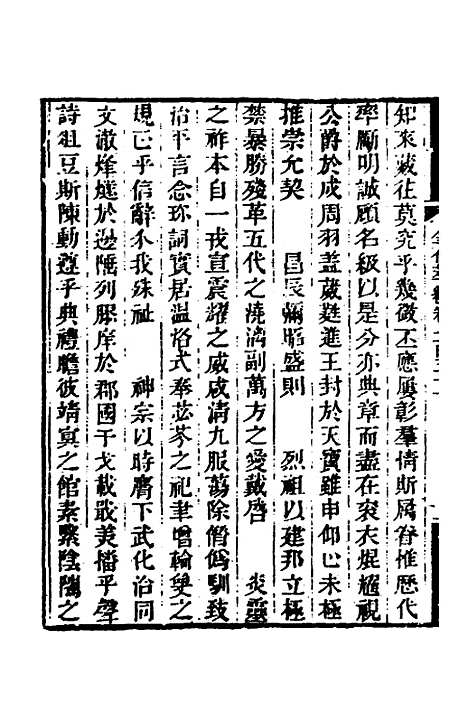 知來藏往莫究乎幾微丕應屢彰羣情斯屬眷惟歷代
率勵明誠顧名級以是分亦典章而盡在袞衣焜耀視
公爵於成周羽蓋葳蕤進王封於天寶雖申仰止未極
推崇允契　昌辰彌昭盛則　烈祖以建邦立極
禁暴勝殘革五代之澆漓副萬方之愛戴啓　炎靈
之祚本自一戎宣震耀之威咸清九服蕩除僭僞馴致
治平言念珍祠實居溫洛式奉苾芬之祀聿增輪奐之
規已乎信辭永我殊祉　神宗以時膺下武化治同
文澈烽燧於邊陲列膠庠於郡國干戈載戢美播乎聲
詩俎豆斯陳動遵乎典禮瞻彼靖冥之館素繄陰隲之